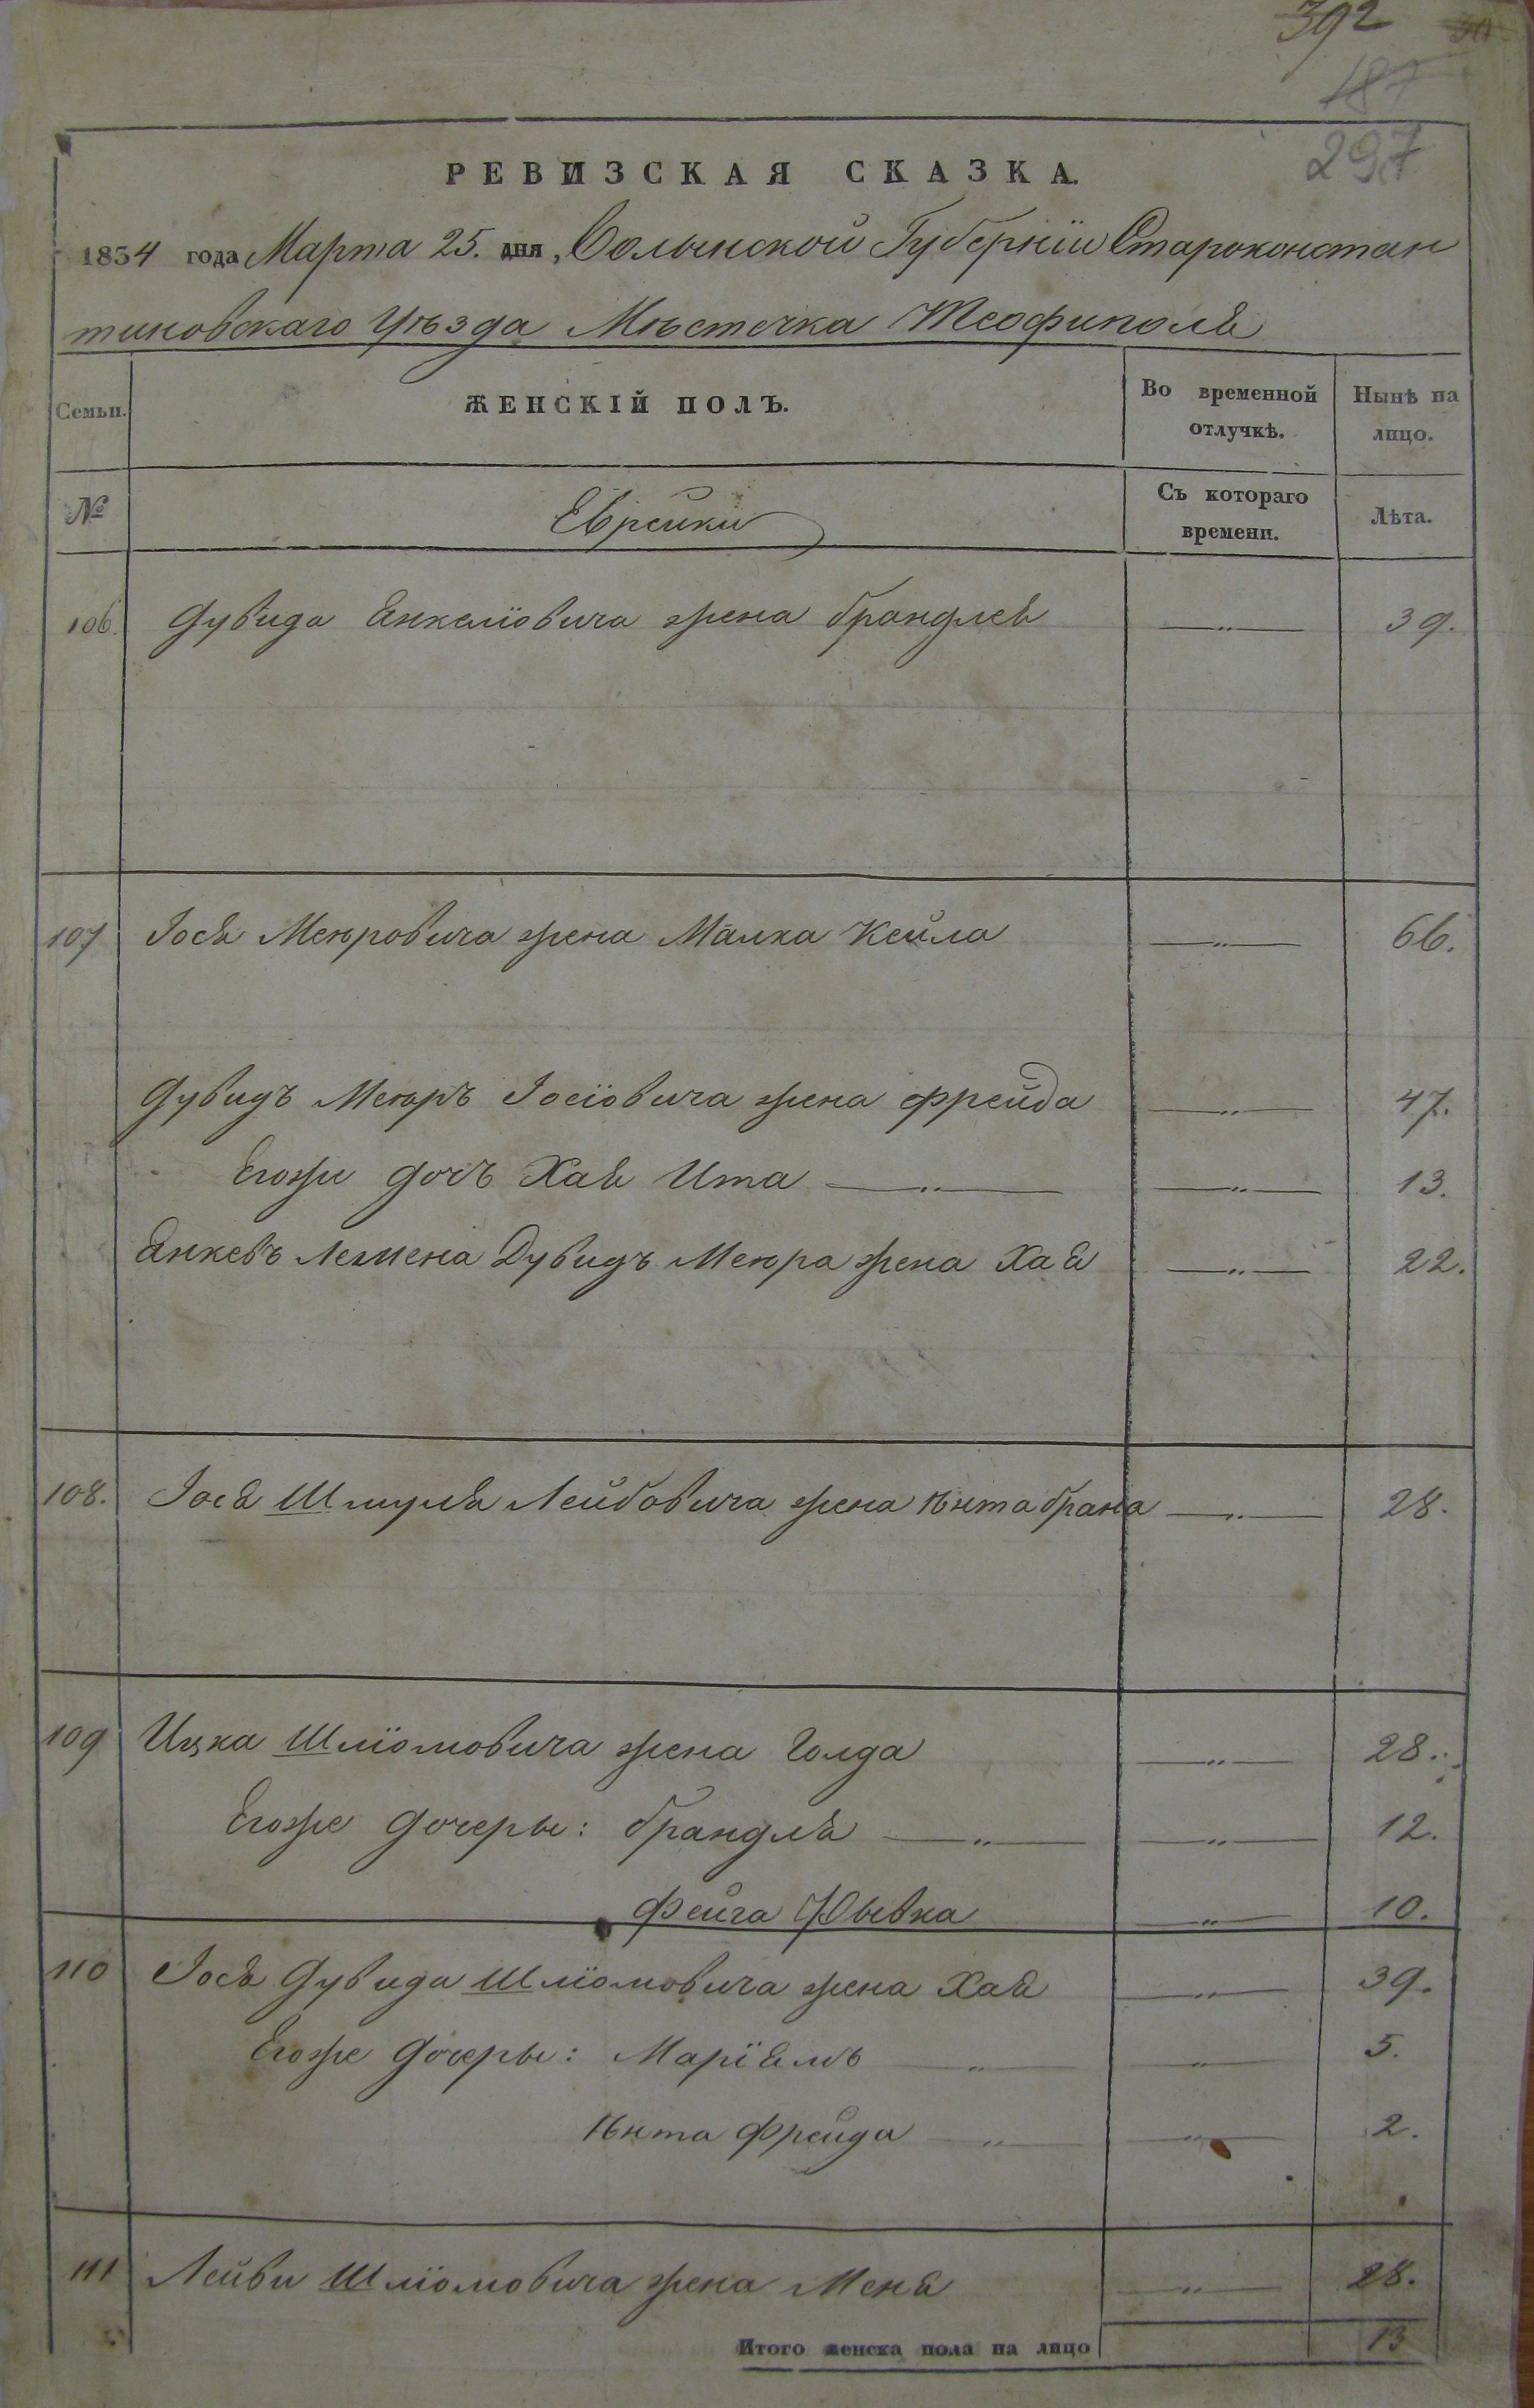 392
187
297
РЕВИЗСКАЯ СКАЗКА.
1854 года Марта 25. дня, Волынской Губернїи Староконстан
тиновскаго Уѣзда Мѣстечка Теофиполя
Семьи. ЖЕНСКІЙ ПОЛЪ. Во временной отлучкѣ. Нынѣ на лицо.
№ Еврейки Съ котораго времени. Лѣта.
106. Дувида Янкелїовича жена Брандлея —„— 39.
107 Іося Меюровича жена Малка Кейла —„— 66.
Дувидъ Меюръ Іосїовича жена Фрейда —„— 47.
Егожи дочъ Хая Ита —„— —„— 13.
Янкевъ Лемена Дувидъ Меюра жена Хая —„— 22.
108. Іося Шмуля Лейбовича жена Ѣнта Брана —„— 28.
109 Ицка Шлїомовича жена Голда —„— 28.
Егоже дочеры: Брандля —„— —„— 12.
Фейга —„— 10.
110 Іося Дувида Шлїомовича жена Хая —„— 39.
Егоже дочеры: Марїямъ —„— —„— 5.
Ѣнта Фрейда —„— —„— 2.
111 Лейви Шлїомовича жена Меня —„— 28.
Итого женска пола на лицо 13